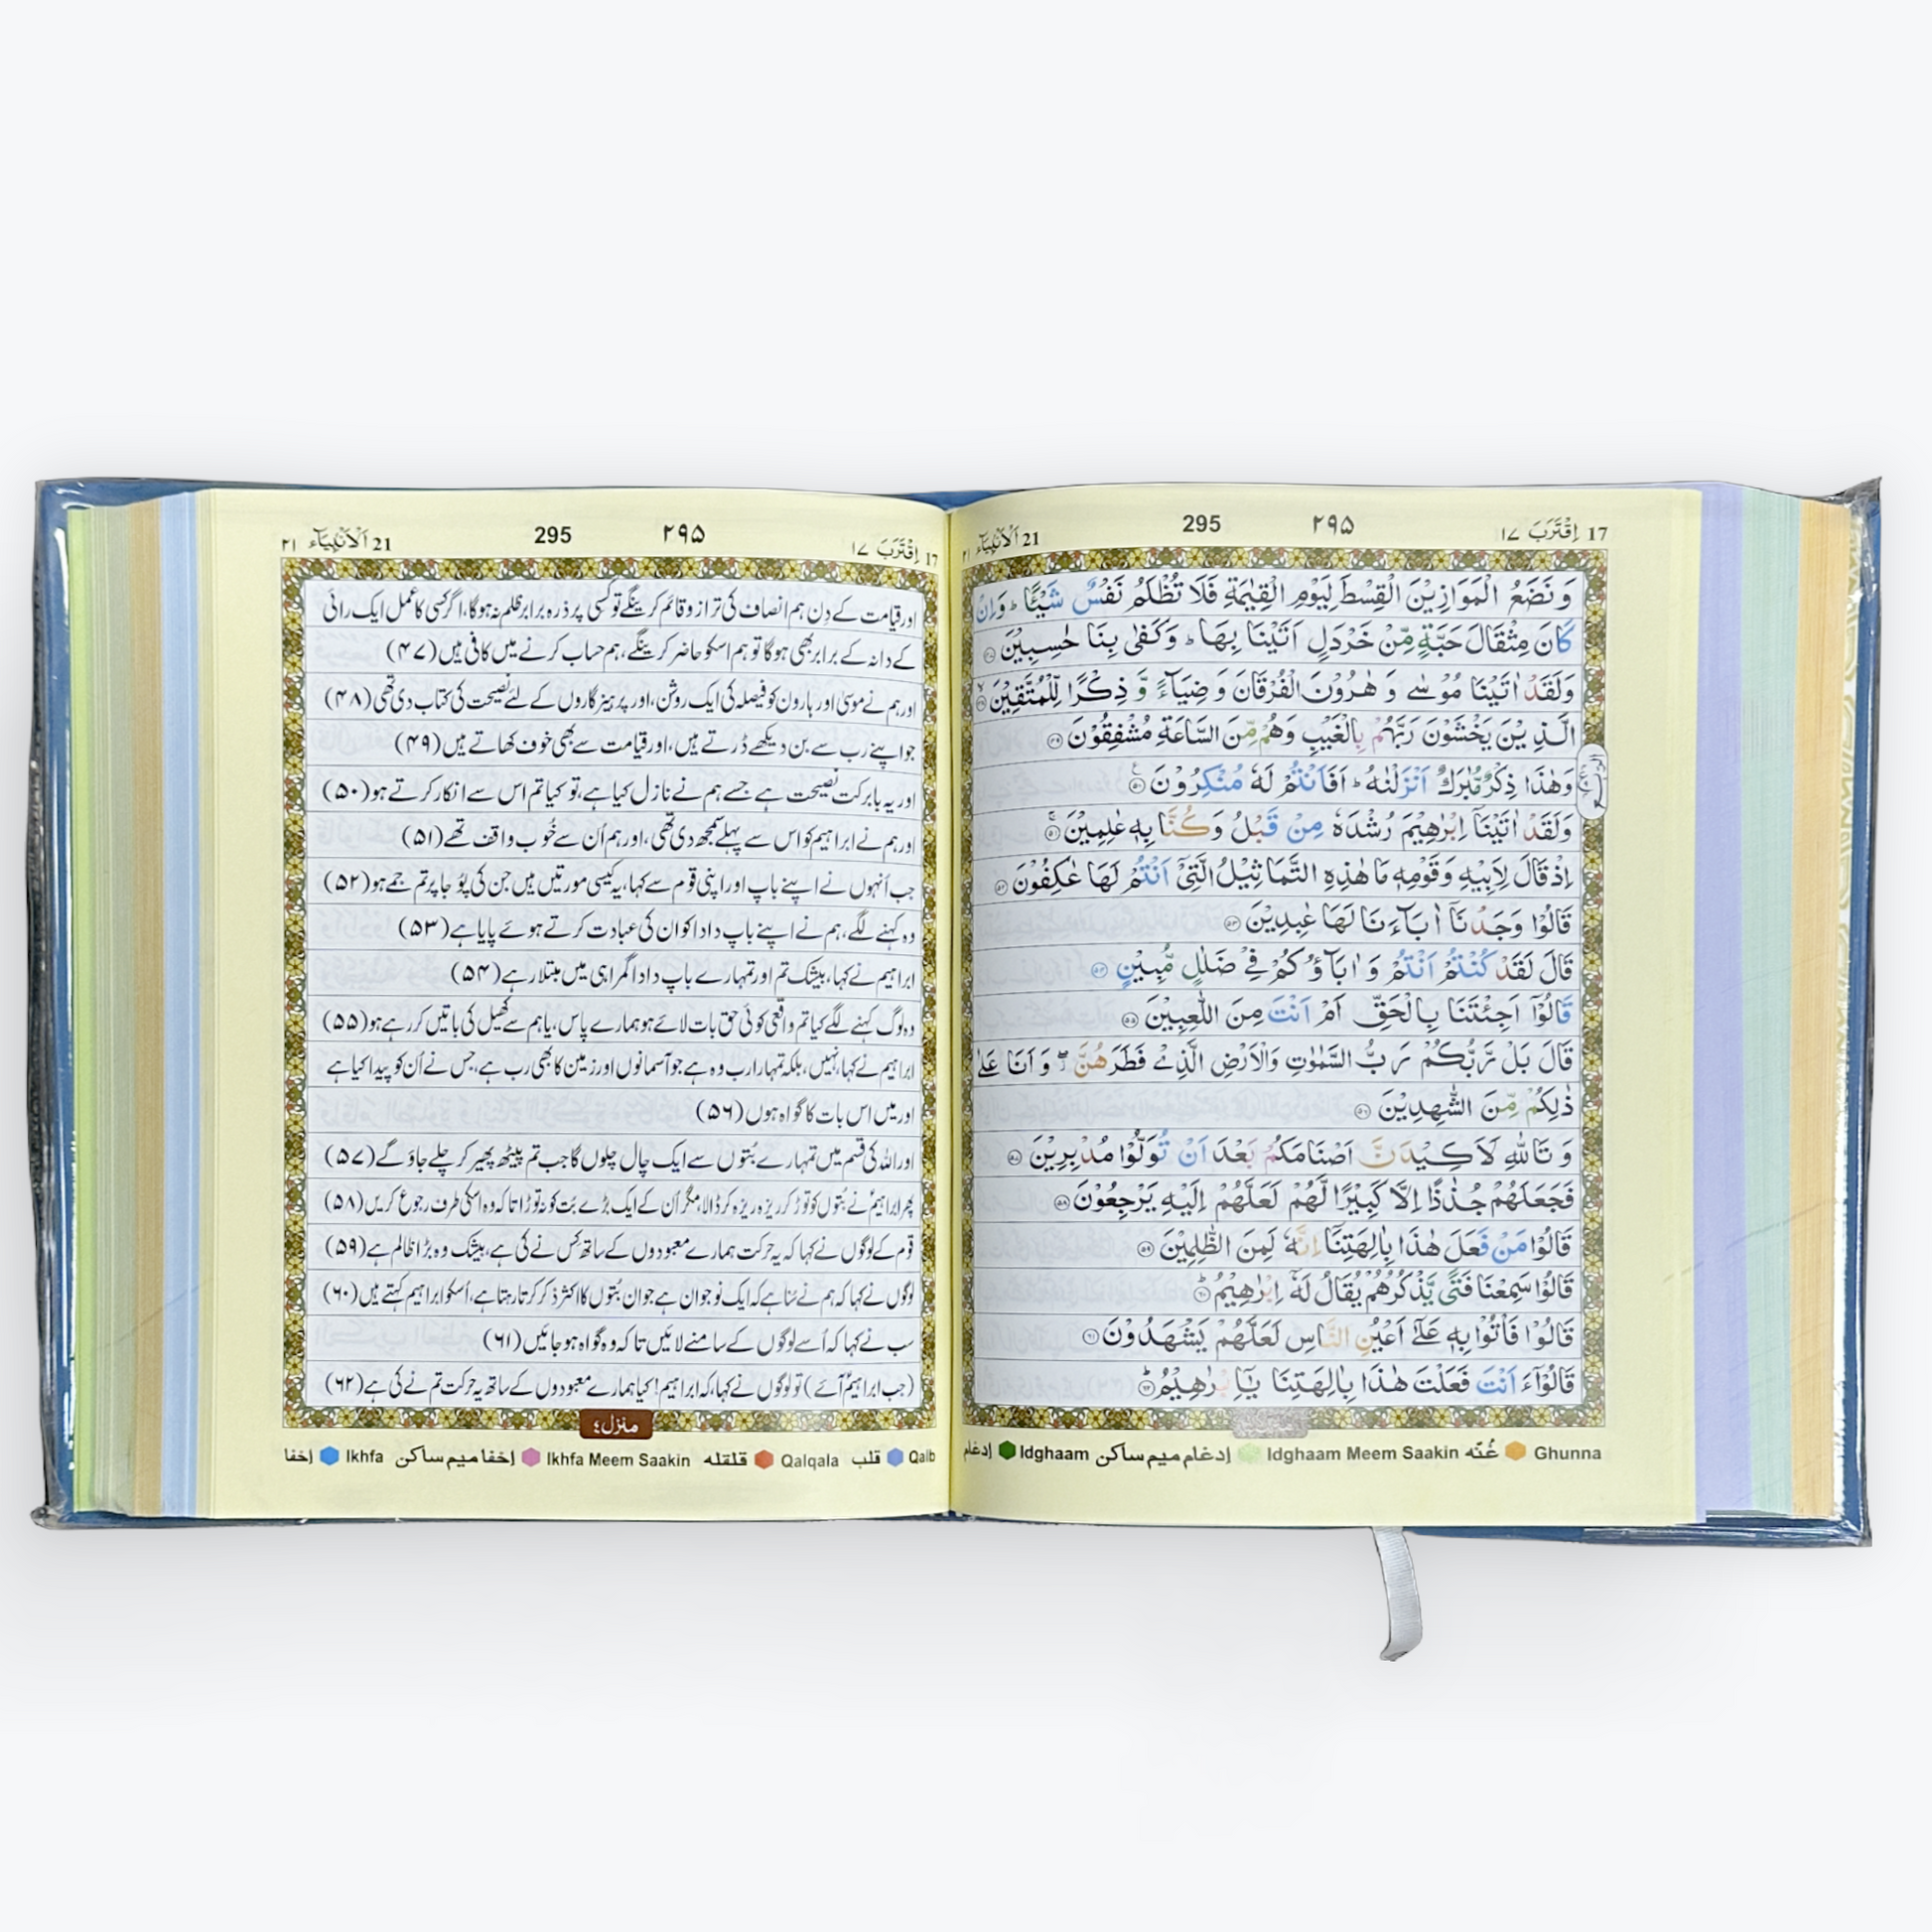 17 اِقْتَرَبَ ١٧
٢٩٥
295
21 اَلْاَنْۢبِيَآء ٢١
وَ نَضَعُ الْمَوَازِيْنَ الْقِسْطَ لِيَوْمِ الْقِيٰمَةِ فَلَا تُظْلَمُ نَفْسٌ شَيْئًا ؕ وَ اِنْ
كَانَ مِثْقَالَ حَبَّةٍ مِّنْ خَرْدَلٍ اَتَيْنَا بِهَا ؕ وَ كَفٰى بِنَا حٰسِبِيْنَ ۝۴۷
وَلَقَدْ اٰتَيْنَا مُوْسٰى وَ هٰرُوْنَ الْفُرْقَانَ وَ ضِيَآءً وَّ ذِكْرًا لِّلْمُتَّقِيْنَ ۝۴۸
الَّذِيْنَ يَخْشَوْنَ رَبَّهُمْ بِالْغَيْبِ وَهُمْ مِّنَ السَّاعَةِ مُشْفِقُوْنَ ۝۴۹
وَهٰذَا ذِكْرٌ مُّبٰرَكٌ اَنْزَلْنٰهُ ؕ اَفَاَنْتُمْ لَهٗ مُنْكِرُوْنَ ۝۵۰
وَلَقَدْ اٰتَيْنَاۤ اِبْرٰهِيْمَ رُشْدَهٗ مِنْ قَبْلُ وَ كُنَّا بِهٖ عٰلِمِيْنَ ۝۵۱
اِذْ قَالَ لِاَبِيْهِ وَ قَوْمِهٖ مَا هٰذِهِ التَّمَاثِيْلُ الَّتِيْۤ اَنْتُمْ لَهَا عٰكِفُوْنَ ۝۵۲
قَالُوْا وَجَدْنَاۤ اٰبَآءَنَا لَهَا عٰبِدِيْنَ ۝۵۳
قَالَ لَقَدْ كُنْتُمْ اَنْتُمْ وَ اٰبَآؤُكُمْ فِيْ ضَلٰلٍ مُّبِيْنٍ ۝۵۴
قَالُوْۤا اَجِئْتَنَا بِالْحَقِّ اَمْ اَنْتَ مِنَ اللّٰعِبِيْنَ ۝۵۵
قَالَ بَلْ رَّبُّكُمْ رَبُّ السَّمٰوٰتِ وَالْاَرْضِ الَّذِيْ فَطَرَهُنَّ ۖ وَ اَنَا عَلٰى
ذٰلِكُمْ مِّنَ الشّٰهِدِيْنَ ۝۵۶
وَ تَاللّٰهِ لَاَكِيْدَنَّ اَصْنَامَكُمْ بَعْدَ اَنْ تُوَلُّوْا مُدْبِرِيْنَ ۝۵۷
فَجَعَلَهُمْ جُذٰذًا اِلَّا كَبِيْرًا لَّهُمْ لَعَلَّهُمْ اِلَيْهِ يَرْجِعُوْنَ ۝۵۸
قَالُوْا مَنْ فَعَلَ هٰذَا بِاٰلِهَتِنَاۤ اِنَّهٗ لَمِنَ الظّٰلِمِيْنَ ۝۵۹
قَالُوْا سَمِعْنَا فَتًى يَّذْكُرُهُمْ يُقَالُ لَهٗۤ اِبْرٰهِيْمُ ؕ۝۶۰
قَالُوْا فَاْتُوْا بِهٖ عَلٰۤى اَعْيُنِ النَّاسِ لَعَلَّهُمْ يَشْهَدُوْنَ ۝۶۱
قَالُوْۤا ءَاَنْتَ فَعَلْتَ هٰذَا بِاٰلِهَتِنَا يٰۤاِبْرٰهِيْمُ ؕ۝۶۲
Ghunna غُنّه Idghaam Meem Saakin إدغام ميم ساكن Idghaam إدغام
17 اِقْتَرَبَ ١٧
٢٩٥
295
21 اَلْاَنْۢبِيَآء ٢١
اور قیامت کے دِن ہم انصاف کی ترازو قائم کرینگے تو کسی پر ذرہ برابر ظلم نہ ہوگا، اگر کسی کا عمل ایک رائی
کے دانہ کے برابر بھی ہوگا تو ہم اسکو حاضر کرینگے، ہم حساب کرنے میں کافی ہیں (۴۷)
اور ہم نے موسیٰ اور ہارون کو فیصلہ کی ایک روشن، اور پرہیزگاروں کے لئے نصیحت کی کتاب دی تھی (۴۸)
جو اپنے رب سے بن دیکھے ڈرتے ہیں، اور قیامت سے بھی خوف کھاتے ہیں (۴۹)
اور یہ بابرکت نصیحت ہے جسے ہم نے نازل کیا ہے، تو کیا تم اس سے انکار کرتے ہو (۵۰)
اور ہم نے ابراہیم کو اس سے پہلے سمجھ دی تھی، اور ہم اُن سے خُوب واقف تھے (۵۱)
جب اُنہوں نے اپنے باپ اور اپنی قوم سے کہا، یہ کیسی مورتیں ہیں جن کی پُوجا پر تم جمے ہو (۵۲)
وہ کہنے لگے، ہم نے اپنے باپ دادا کو ان کی عبادت کرتے ہوئے پایا ہے (۵۳)
ابراہیم نے کہا، بیشک تم اور تمہارے باپ دادا گمراہی میں مبتلا رہے (۵۴)
وہ لوگ کہنے لگے کیا تم واقعی کوئی حق بات لائے ہو ہمارے پاس، یا ہم سے کھیل کی باتیں کر رہے ہو (۵۵)
ابراہیم نے کہا، نہیں، بلکہ تمہارا رب وہ ہے جو آسمانوں اور زمین کا بھی رب ہے، جس نے اُن کو پیدا کیا ہے
اور میں اس بات کا گواہ ہوں (۵۶)
اور اللہ کی قسم میں تمہارے بُتوں سے ایک چال چلوں گا جب تم پیٹھ پھیر کر چلے جاؤ گے (۵۷)
پھر ابراہیمؑ نے بُتوں کو توڑ کر ریزہ ریزہ کر ڈالا، مگر اُن کے ایک بڑے بُت کو نہ توڑا تاکہ وہ اسکی طرف رجوع کریں (۵۸)
قوم کے لوگوں نے کہا کہ یہ حرکت ہمارے معبودوں کے ساتھ کِس نے کی ہے، بیشک وہ بڑا ظالم ہے (۵۹)
لوگوں نے کہا کہ ہم نے سُنا ہے کہ ایک نوجوان ہے جو ان بُتوں کا اکثر ذکر کرتا رہتا ہے، اُسکو ابراہیم کہتے ہیں (۶۰)
سب نے کہا کہ اُسے لوگوں کے سامنے لائیں تاکہ وہ گواہ ہو جائیں (۶۱)
(جب ابراہیمؑ آئے) تو لوگوں نے کہا، کہ ابراہیم! کیا ہمارے معبودوں کے ساتھ یہ حرکت تم نے کی ہے (۶۲)
منزل٤
Qalb قلب Qalqala قلقله Ikhfa Meem Saakin إخفا ميم ساكن Ikhfa إخفا